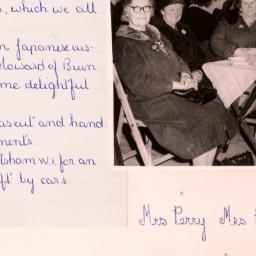 , which we all
n Japanese cus-
Howard of Burn
me delightful
as cut and hand
ments.
tsham W.I. for an
ft by cars
Mrs Perry Mrs